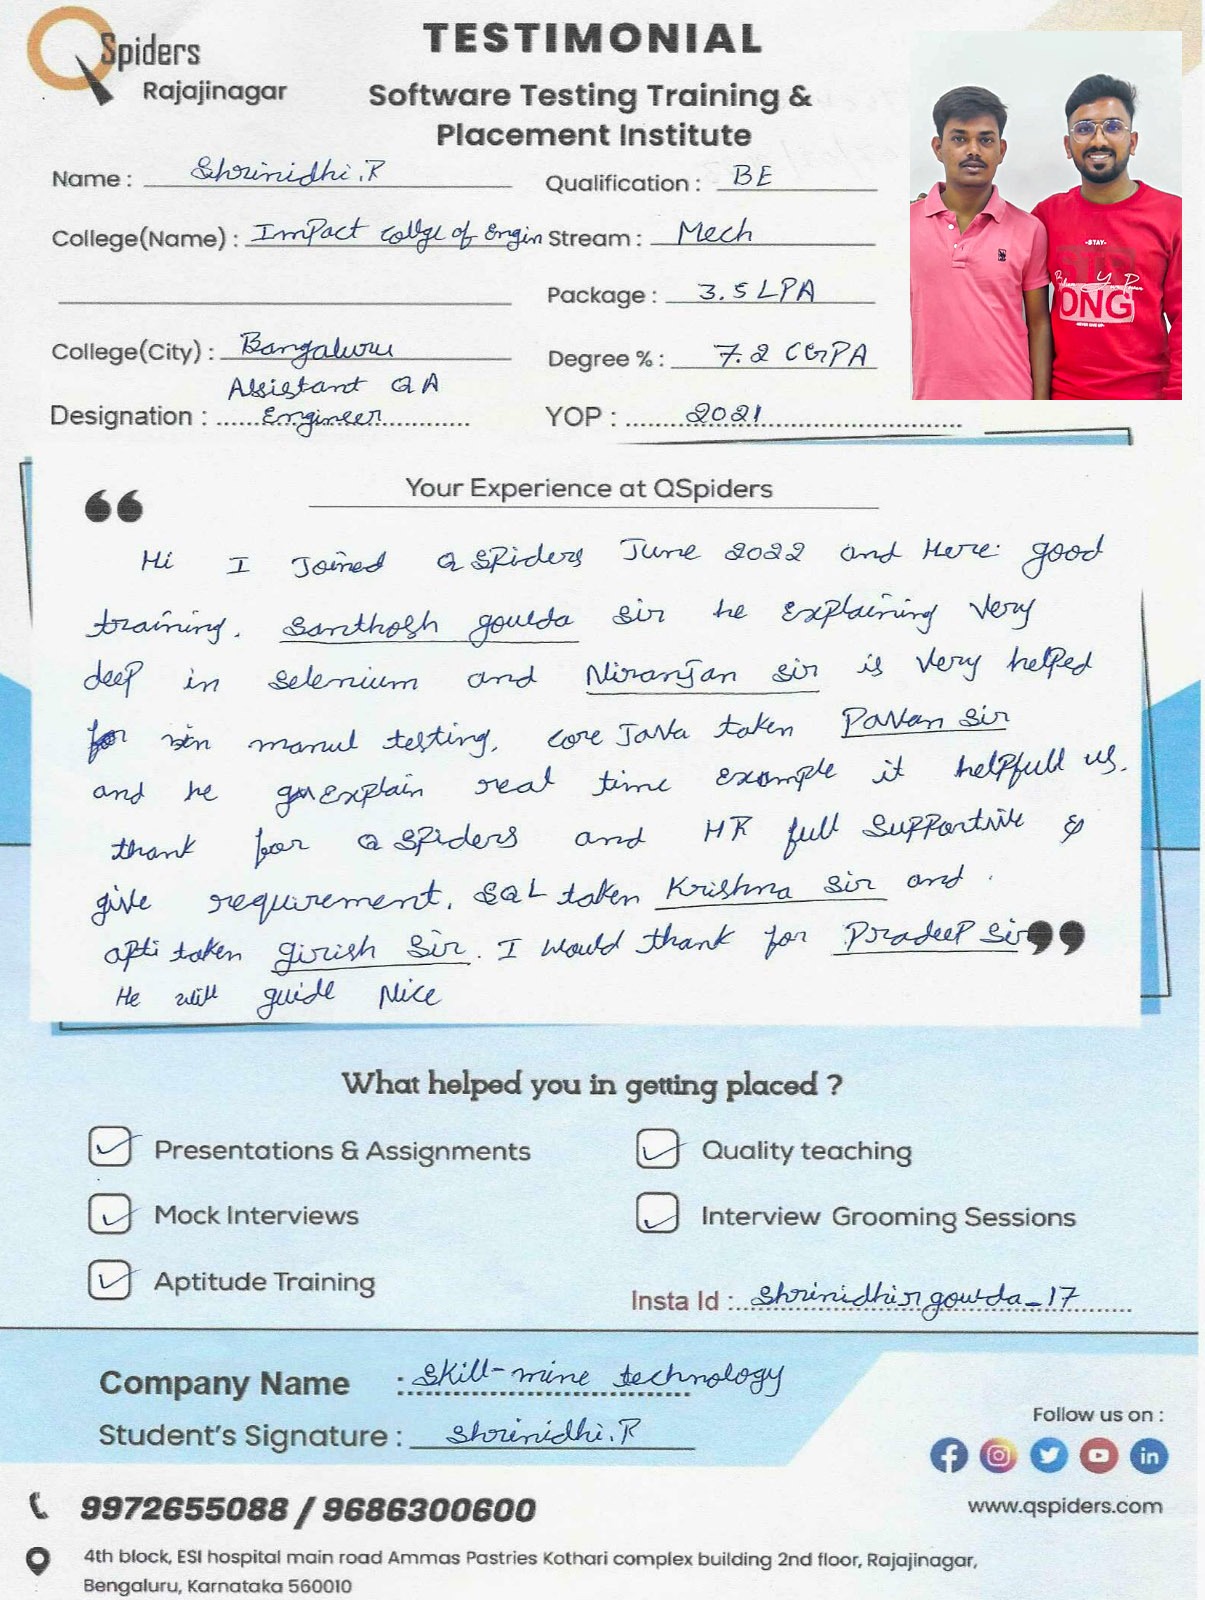 QSpiders
Rajajinagar
TESTIMONIAL
Software Testing Training &
Placement Institute
Name : Shrinidhi.R
Qualification : BE
College(Name) : Impact collge of Engin
Stream : Mech
Package : 3.5 LPA
College(City) : Bangaluru
Degree % : 7.2 CGPA
Assistant QA
Designation : Engineer
YOP : 2021
-STAY-
STR
ONG
-NEVER GIVE UP-
Your Experience at QSpiders
“
Hi I Joined Q SPiders June 2022 and Here: good
training. Santhosh gowda sir he explaining very
deep in selenium and Niranjan sir is very helped
for in manul testing, core Java taken Pavan Sir
and he explain real time example it helpfull us.
thank for Q SPiders and HR full Supportive &
give requirement. SQL taken Krishna Sir and
apti taken girish Sir. I would thank for Pradeep Sir
”
He will guide Nice
What helped you in getting placed ?
Presentations & Assignments
Quality teaching
Mock Interviews
Interview Grooming Sessions
Aptitude Training
Insta Id : shrinidhirgowda_17
Company Name : Skill-mine technology
Student's Signature : Shrinidhi.R
Follow us on :
www.qspiders.com
9972655088 / 9686300600
4th block, ESI hospital main road Ammas Pastries Kothari complex building 2nd floor, Rajajinagar,
Bengaluru, Karnataka 560010